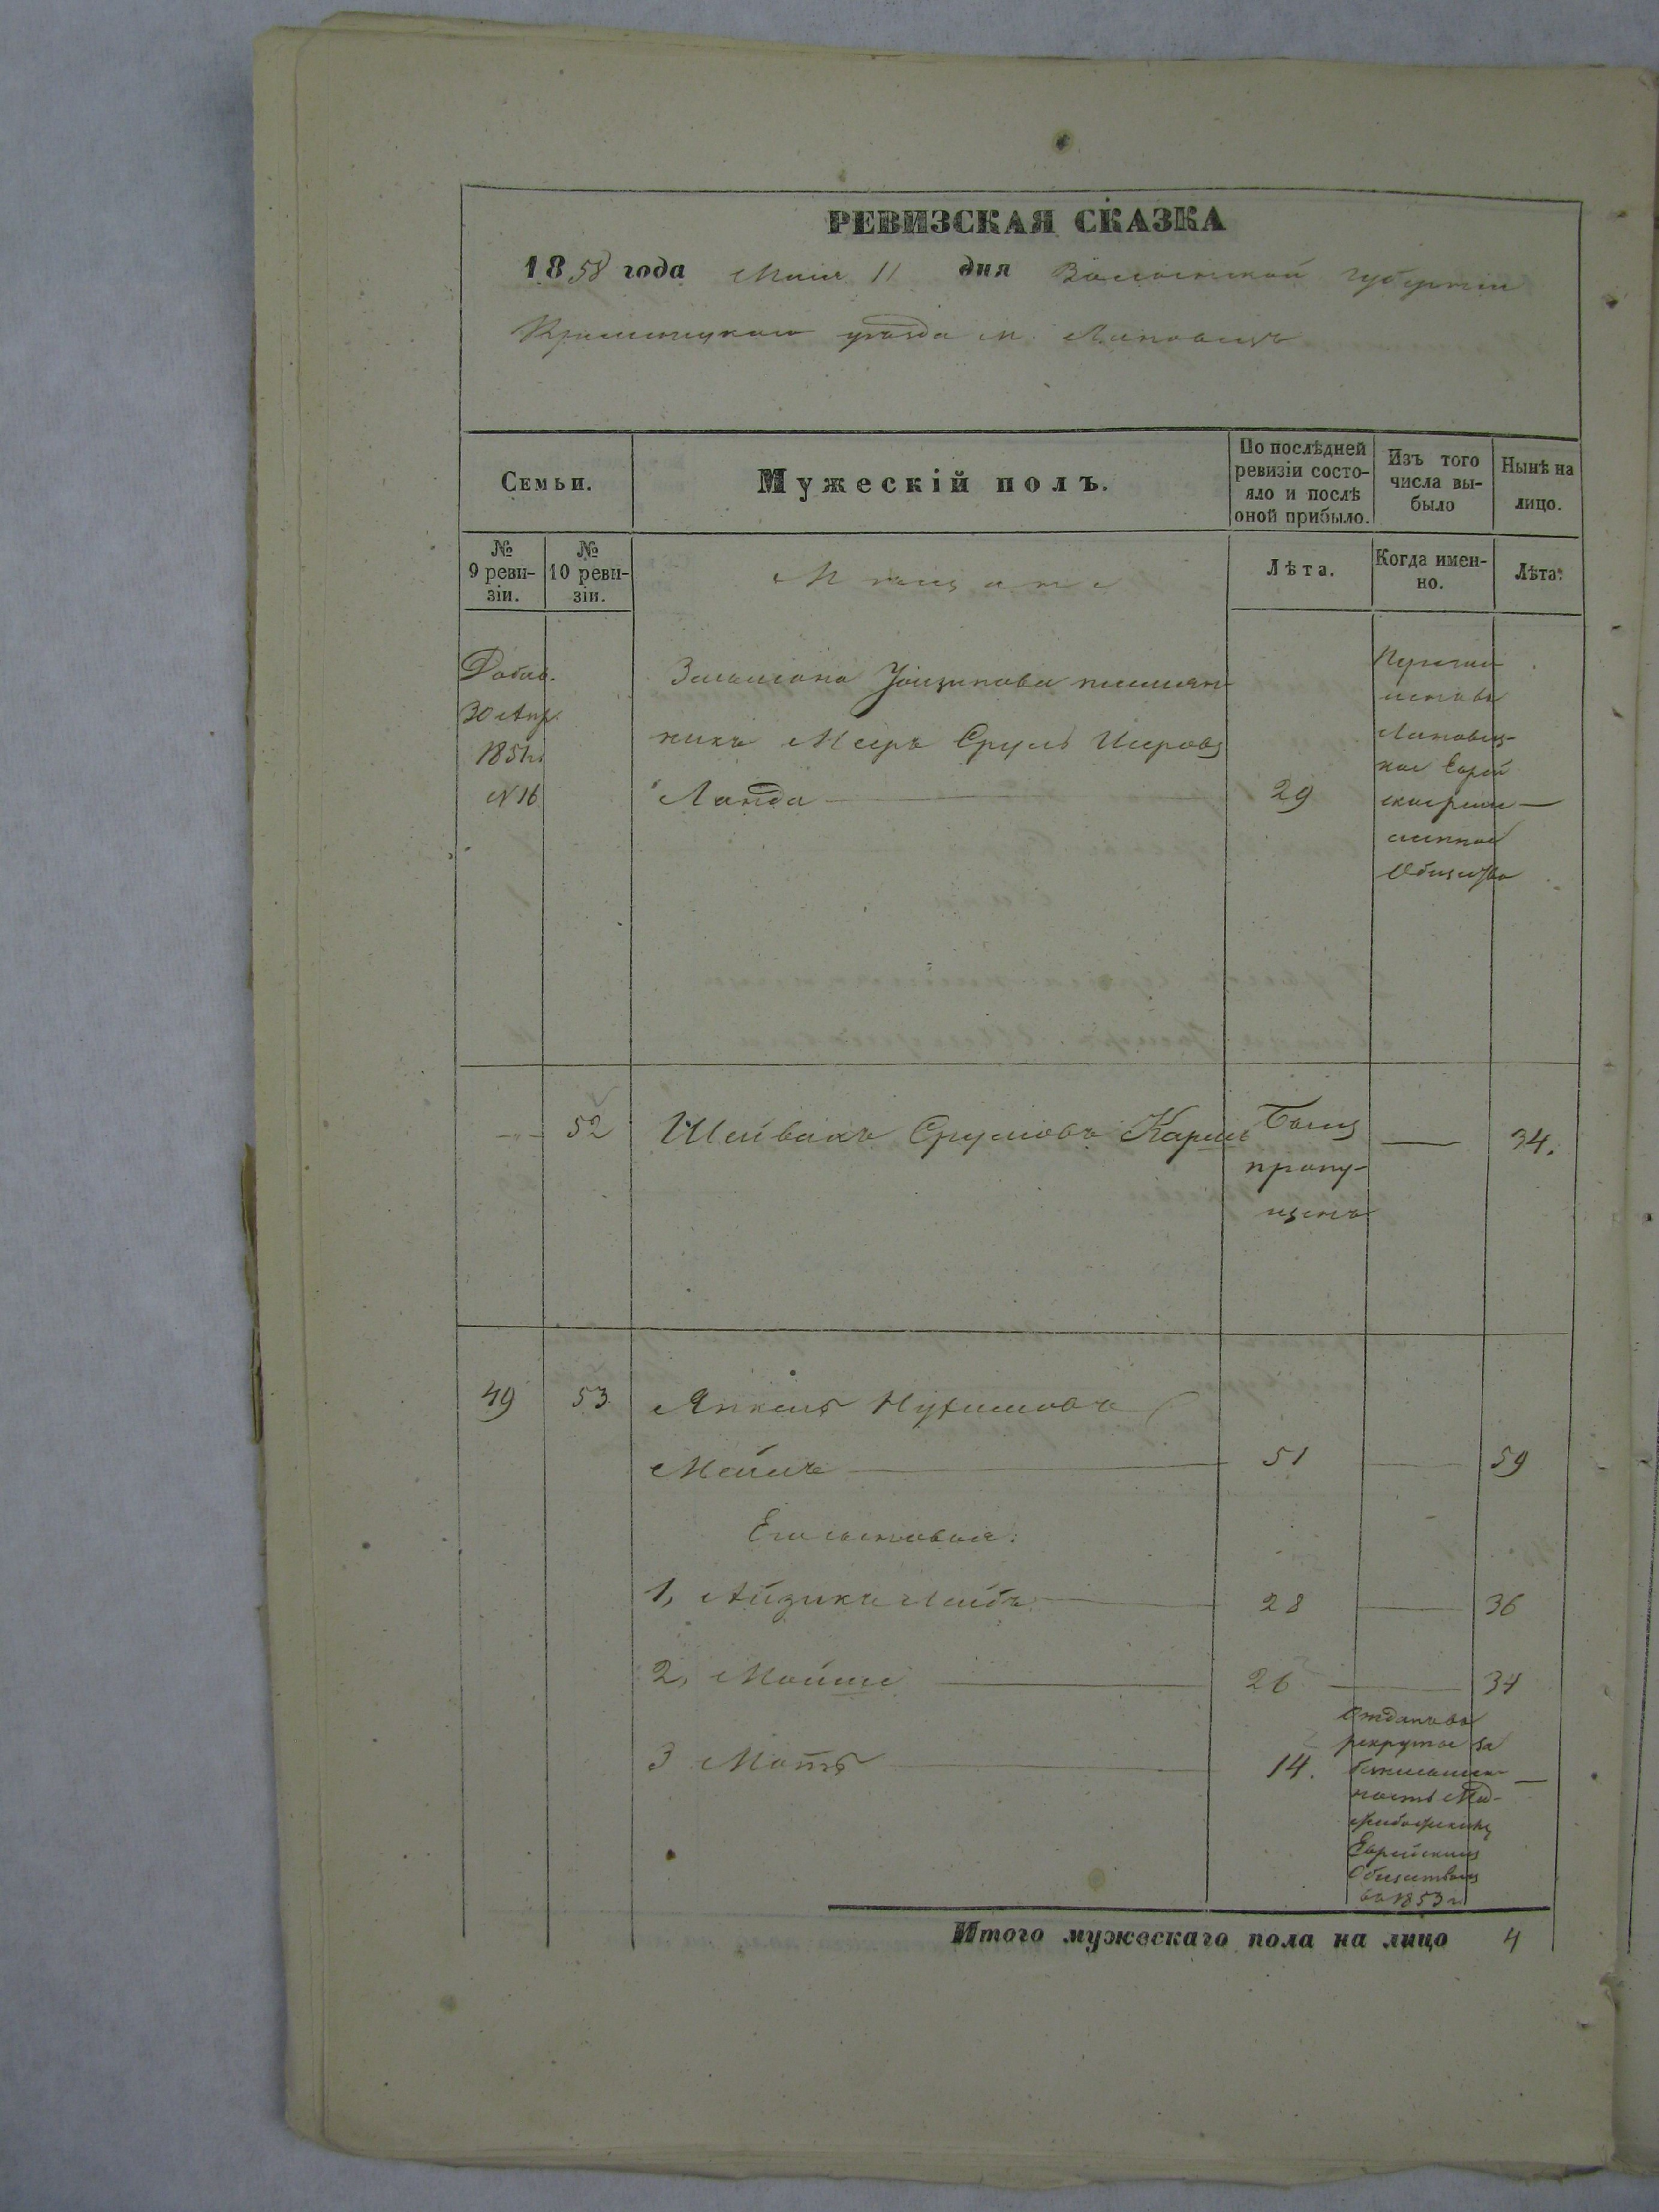 РЕВИЗСКАЯ СКАЗКА
1858 года Маія 11 дня Волынской губерніи
Кременецкаго уѣзда м. Лановецъ
Семьи.
Мужескій полъ.
По послѣдней ревизіи состо-
яло и послѣ
оной прибыло.
Изъ того
числа вы-
было
Нынѣ на
лицо.
№
9 реви-
зіи.
№
10 реви-
зіи.
Мѣщане
Лѣта.
Когда имен-
но.
Лѣта.
Добав.
30 Апр.
1851 г.
N 16
племян-
никъ Мееръ Сруль
Ланда
29
Еврей
Общество
52
Срулевъ
Былъ
пропу-
щенъ
34.
49
53
Янкель Нухимовъ
51
59
Его сыновья:
1, Айзикъ Лейбъ
28
36
2, Мойше
26
34
3 Мотъ
14.
Отданъ въ
рекруты за
Еврейскимъ
Обществомъ
въ 1853 г.
Итого мужескаго пола на лицо 4